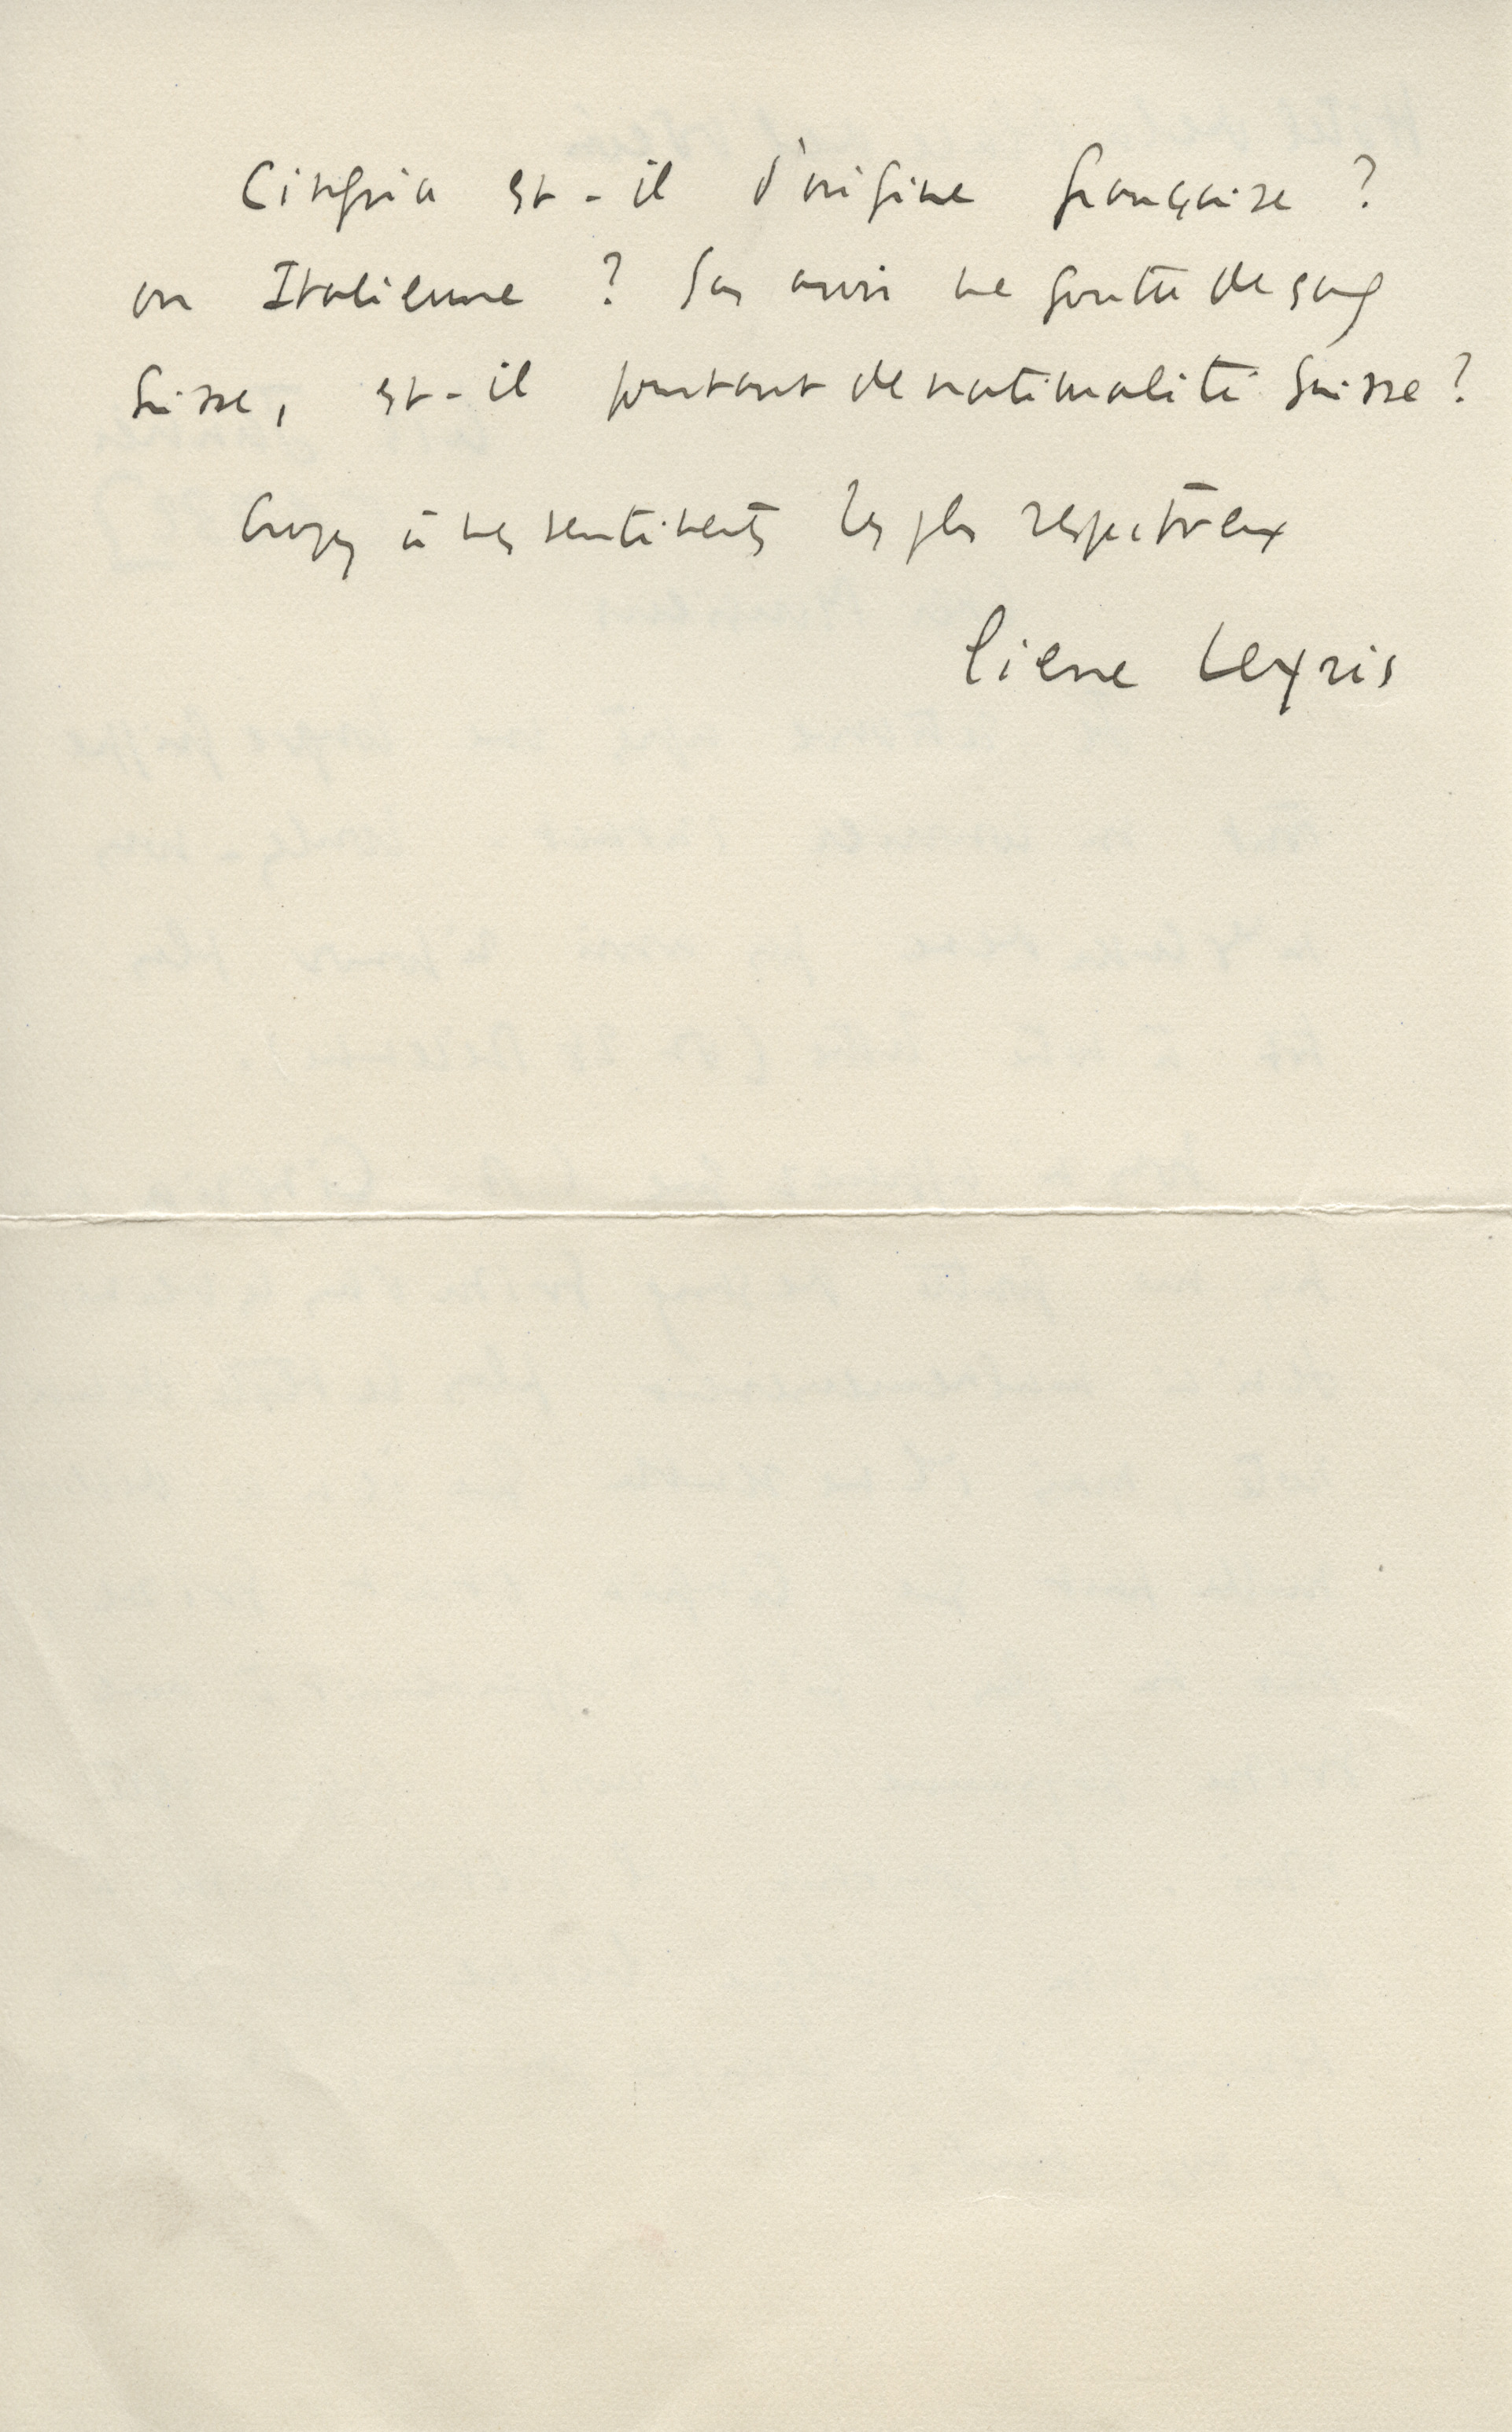 Cingria est-il d'origine française ?
ou Italienne ? Sans avoir une goutte de sang
Suisse, est-il pourtant de nationalité Suisse ?
Croyez à mes sentiments les plus respectueux
Pierre Leyris